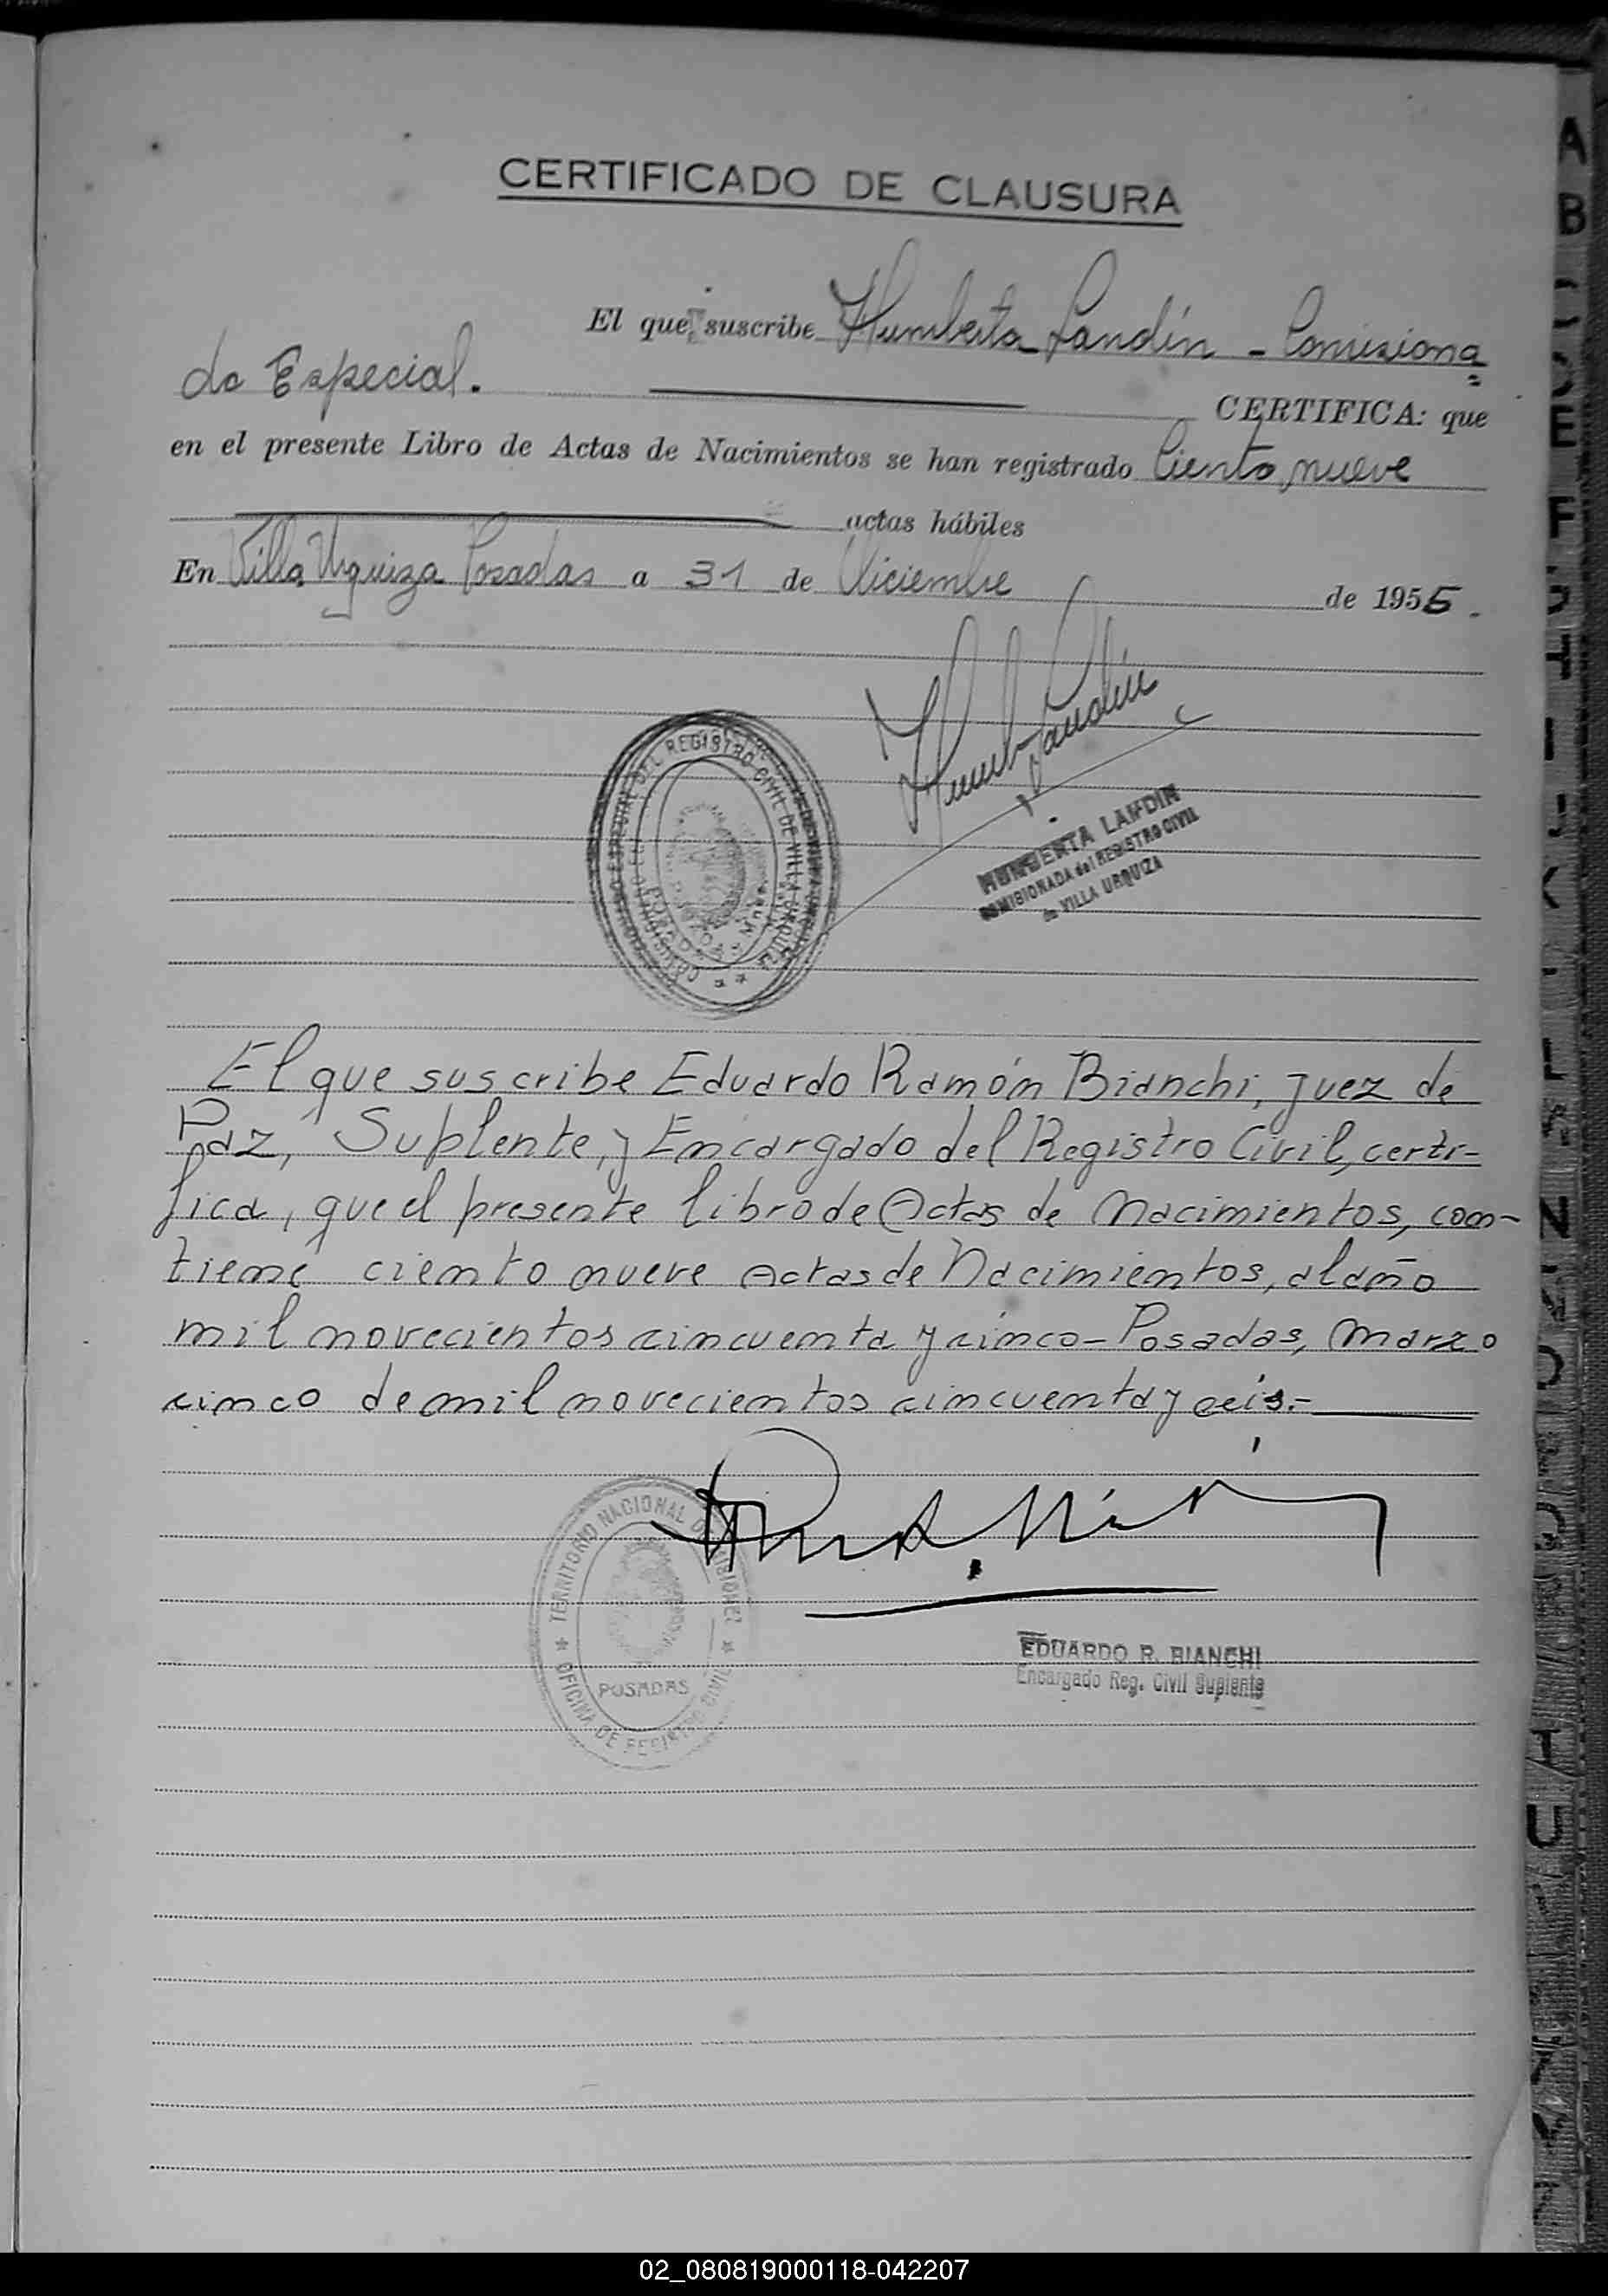 CERTIFICADO DE CLAUSURA
El que suscribe Humberta Landín - Comisiona
do Especial. CERTIFICA: que
en el presente Libro de Actas de Nacimientos se han registrado Ciento nueve
actas hábiles
En Villa Urquiza Posadas a 31 de Diciembre de 1955.
REGISTRO CIVIL DE VILLA URQUIZA
Humb Landín
HUMBERTA LANDIN
COMISIONADA del REGISTRO CIVIL
de VILLA URQUIZA
El que suscribe Eduardo Ramón Bianchi, Juez de
Paz, Suplente, y Encargado del Registro Civil, certi-
fica, que el presente libro de Actas de Nacimientos, con-
tiene ciento nueve Actas de Nacimientos, al año
mil novecientos cincuenta y cinco - Posadas, Marzo
cinco de mil novecientos cincuenta y seis.-
TERRITORIO NACIONAL DE MISIONES
POSADAS
OFICINA DE REGISTRO CIVIL
EDUARDO R. BIANCHI
Encargado Reg. Civil Suplente
02_080819000118-042207